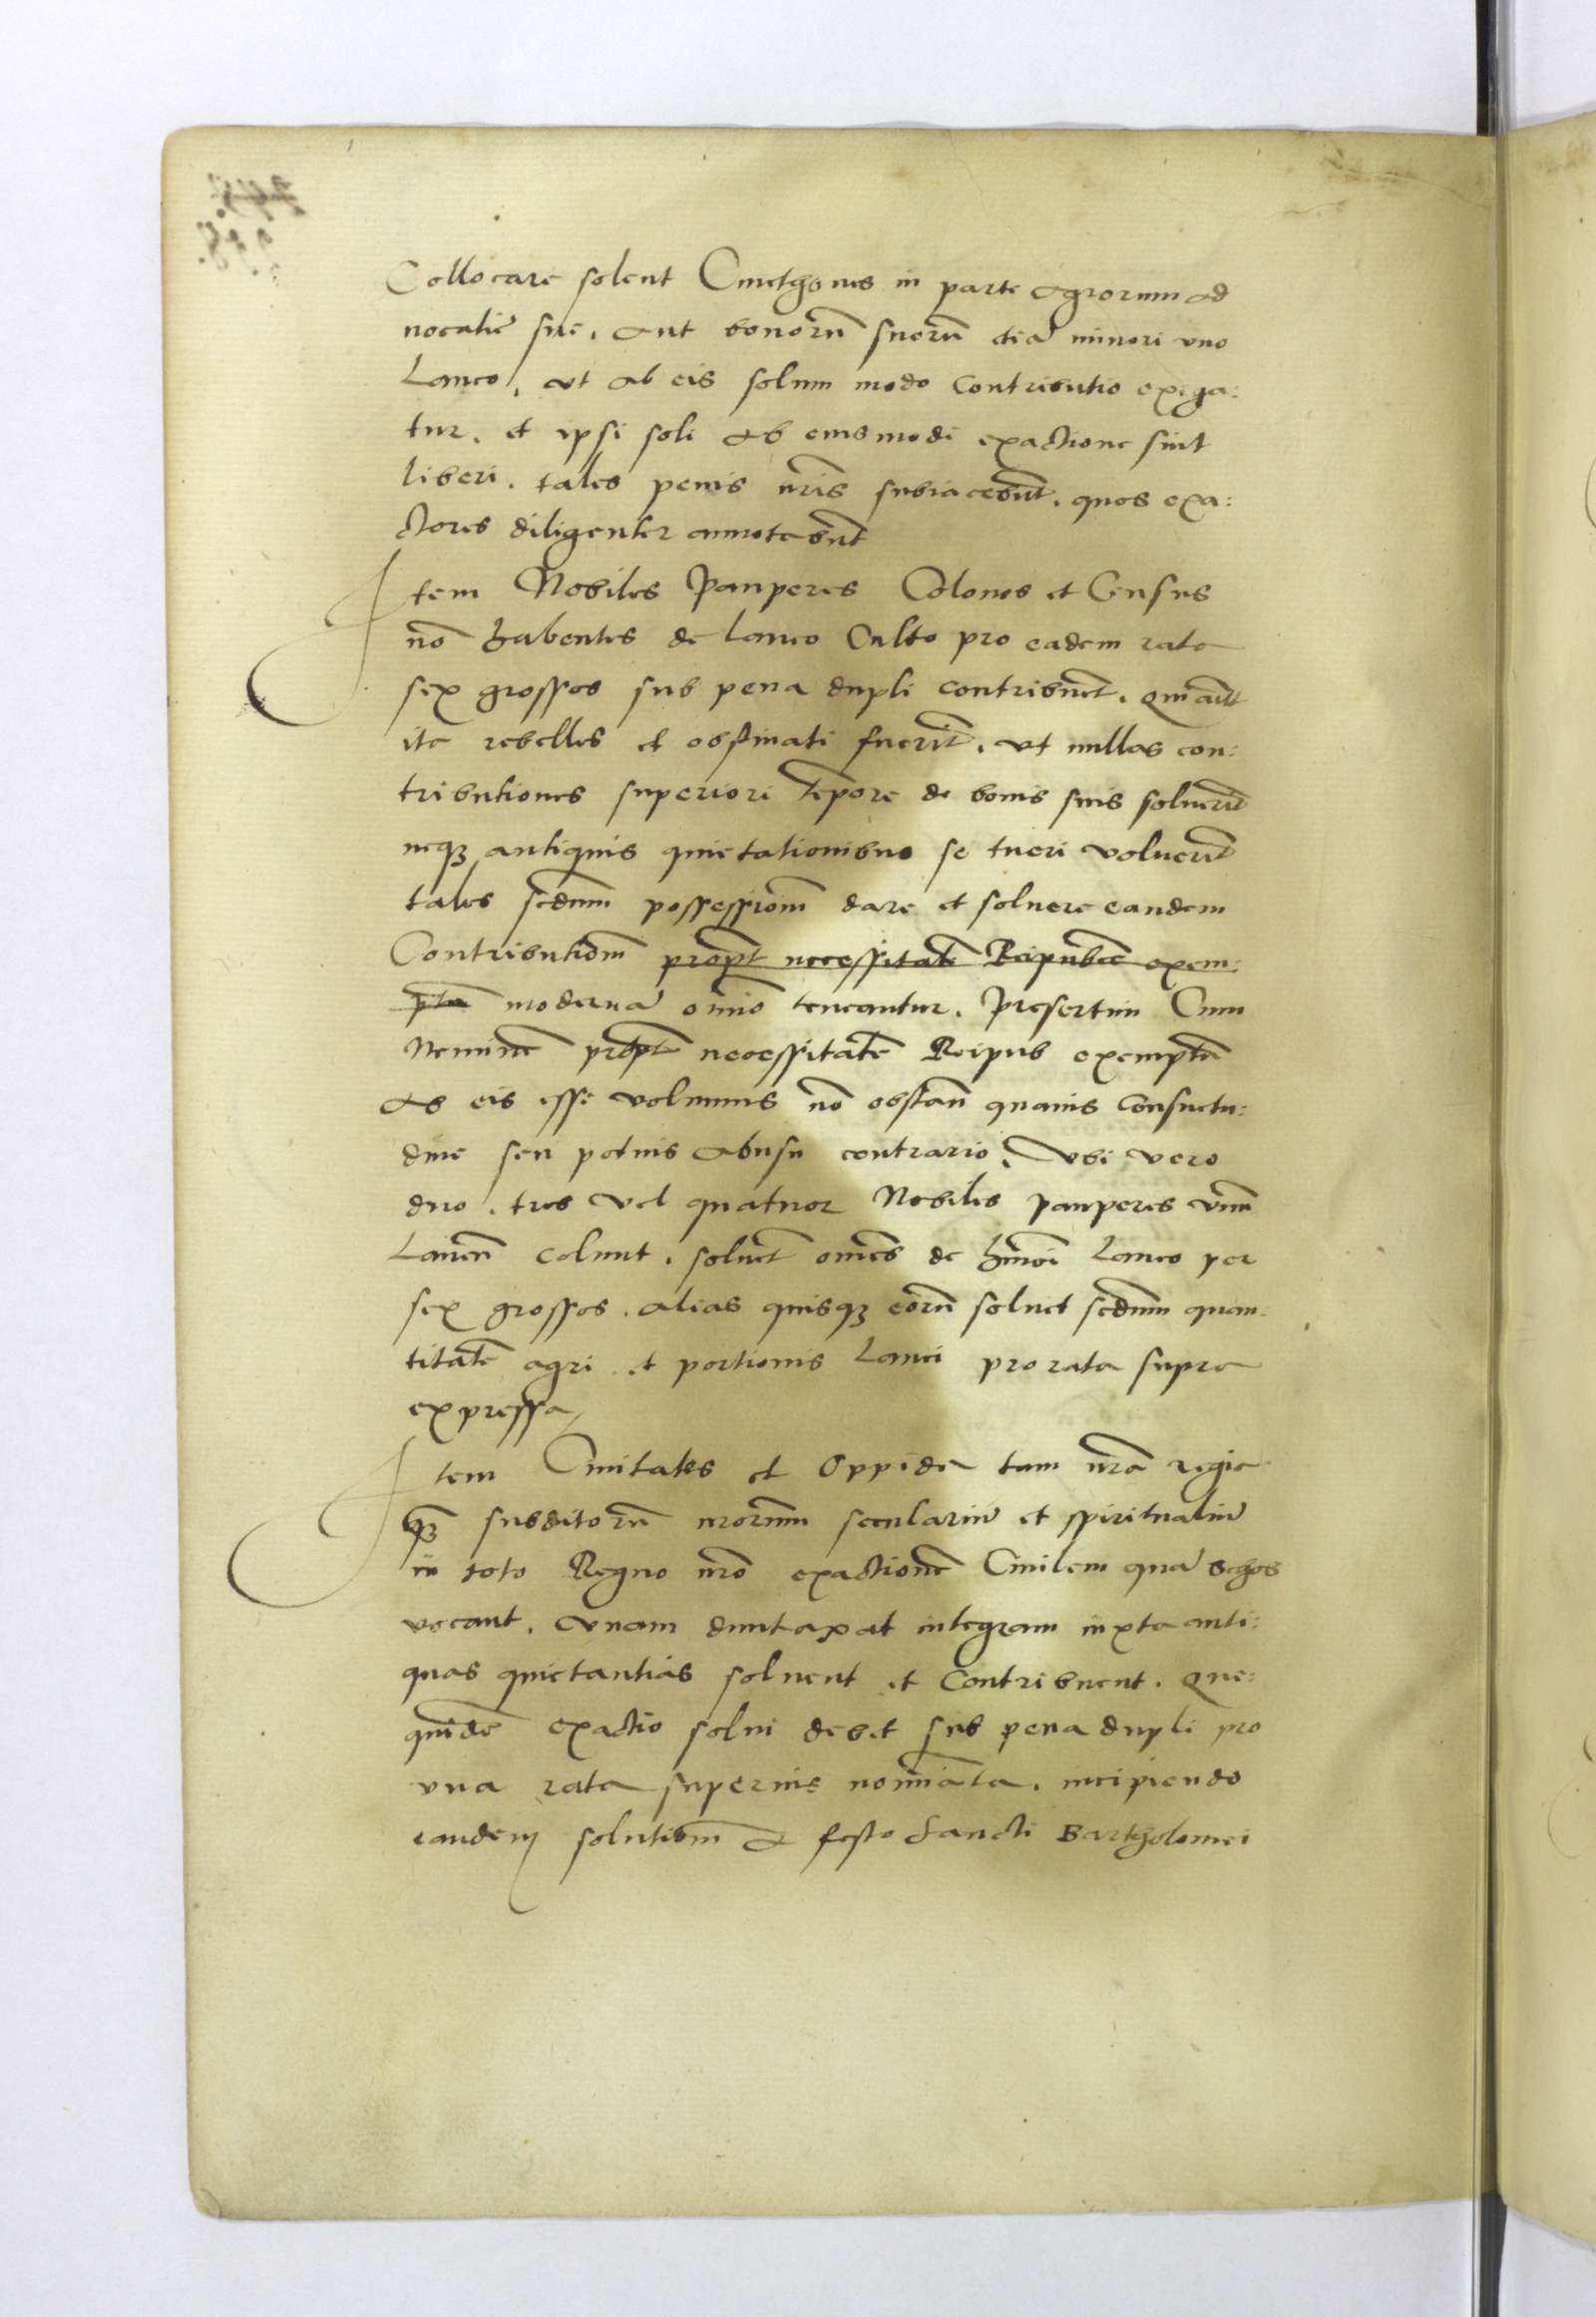 Collocare solent Cmethones in parte agrorum ad
uocatie sue, aut bonorũ suorũ etiã minori vno
Laneo, vt ab eis solum modo contributio exiga:
tur, et ipsi soli ab eiusmodi exactione sint
liberi, tales penis nr̃is subiacebũt, quos exa:
ctores diligenter annotabũt
Item Nobiles Pauperes Colonos et Census
nõ habentes de laneo Culto pro eadem rata
sex grossos sub pena dupli contribuẽt. Qui aũt
ita rebelles et obstinati fuerĩt, vt nullas con:
tributiones superiori tẽpore de bonis suis soluerĩt
neqȝ antiquis quietationibus se tueri voluerĩt
tales scdum possessionẽ dare et soluere eandem
Contributionẽ propt̃ necessitatẽ Reipublice exem:
ptã modernã omĩo teneantur. Presertim Cum
Neminẽ propt̃ necessitatẽ Reipub exemptũ
ab eis esse volumus nõ obstañ quauis Consuetu:
dine seu potius abusu contrario, Vbi vero
duo, tres vel quatuor Nobiles pauperes vnũ
Laneũ colunt, soluẽt omẽs de hm̃oi Laneo per
sex grossos, alias quisqȝ eorũ soluet scdum quan:
titatẽ agri et portionis Lanei pro rata supra
expressa
Item Ciuitates et Oppida tam nr̃a regia
qȝ subditorũ nrorum seculariũ et spiritualiũ
in toto Regno nr̃o exactionẽ Ciuilem quã schos
vocant, vnam duntaxat integram iuxta anti:
quas quietantias soluent et Contribuent. Que:
quidẽ exactio solui debet sub pena dupli pro
vna rata superius nomĩata, incipiendo
eandem solutionẽ a festo Sancti Bartholomei